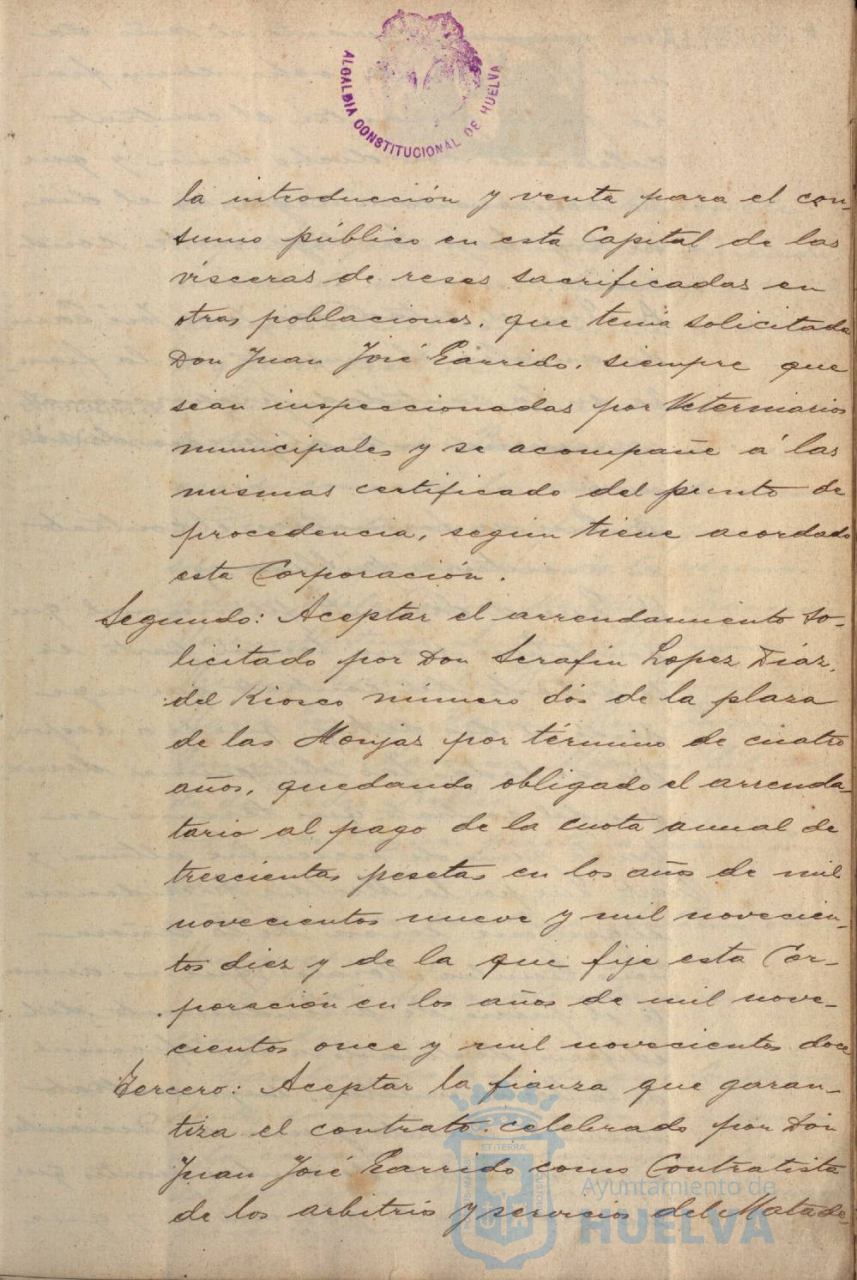 ALCALDIA CONSTITUCIONAL DE HUELVA
la introducción y venta para el con-
sumo público en esta Capital de las
vísceras de reses sacrificadas en
otras poblaciones, que tenia solicitada
Don Juan José Garrido, siempre que
sean inspeccionadas por Veterinarios
municipales y se acompañe á las
mismas certificado del punto de
procedencia, segun tiene acordado
esta Corporación.
Segundo: Aceptar el arrendamiento so-
licitado por Don Serafin Lopez Diaz,
del Kiosco número dos de la plaza
de las Monjas por término de cuatro
años, quedando obligado el arrenda-
tario al pago de la cuota anual de
trescientas pesetas en los años de mil
novecientos nueve y mil novecien-
tos diez y de la que fije esta Cor-
poración en los años de mil nove-
cientos once y mil novecientos doce
Tercero: Aceptar la fianza que garan-
tiza el contrato celebrado por Don
Juan José Garrido como Contratista
de los arbitrios y servicios del Matade-
Ayuntamiento de
HUELVA